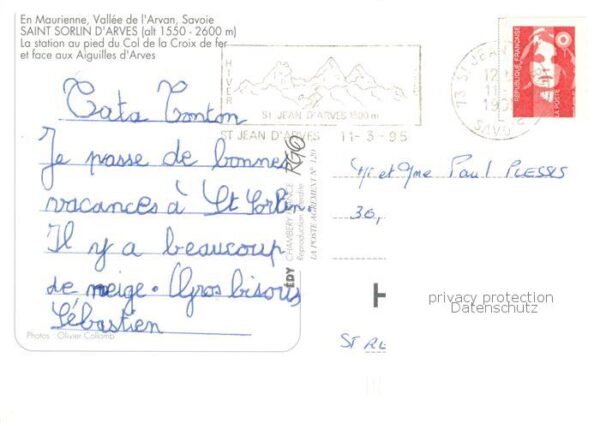 En Maurienne, Vallée de l'Arvan, Savoie
SAINT SORLIN D'ARVES (alt 1550 - 2600 m)
La station au pied du Col de la Croix de fer
et face aux Aiguilles d'Arves
Tata Tonton
Je passe de bonnes
vacances à St Sorlin.
Il y a beaucoup
de neige. Gros bisous
Sébastien
Photos : Olivier Collomb
EDY CHAMBERY FRANCE
Reproduction interdite
LA POSTE AGREMENT N° 120
HIVER
ST JEAN D'ARVES 1600 m
ST JEAN D'ARVES 11-3-95
73 ST JEAN
12
11
19
SAVOIE
REPUBLIQUE FRANÇAISE
LA POSTE
Mr et Mme Paul PLESSIS
30,
H
privacy protection
Datenschutz
ST